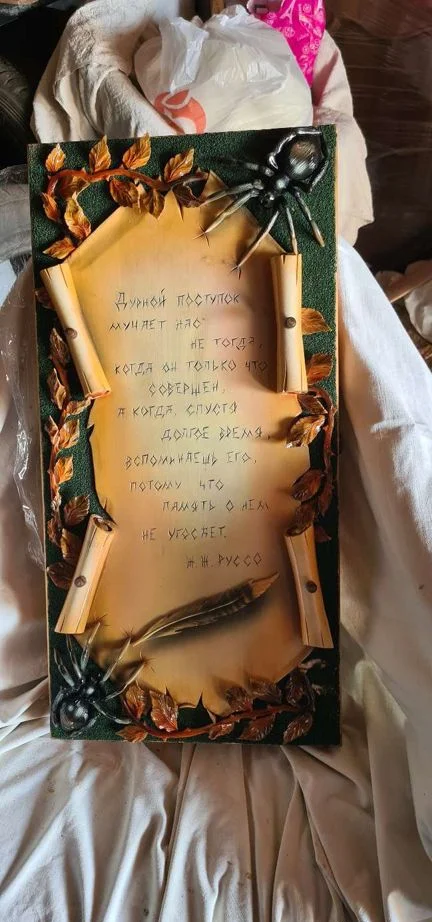 Дурной поступок
мучает нас
не тогда,
когда он только что
совершен,
а когда, спустя
долгое время,
вспоминаешь его,
потому что
память о нем
не угоснет.
Ж.Ж. Руссо